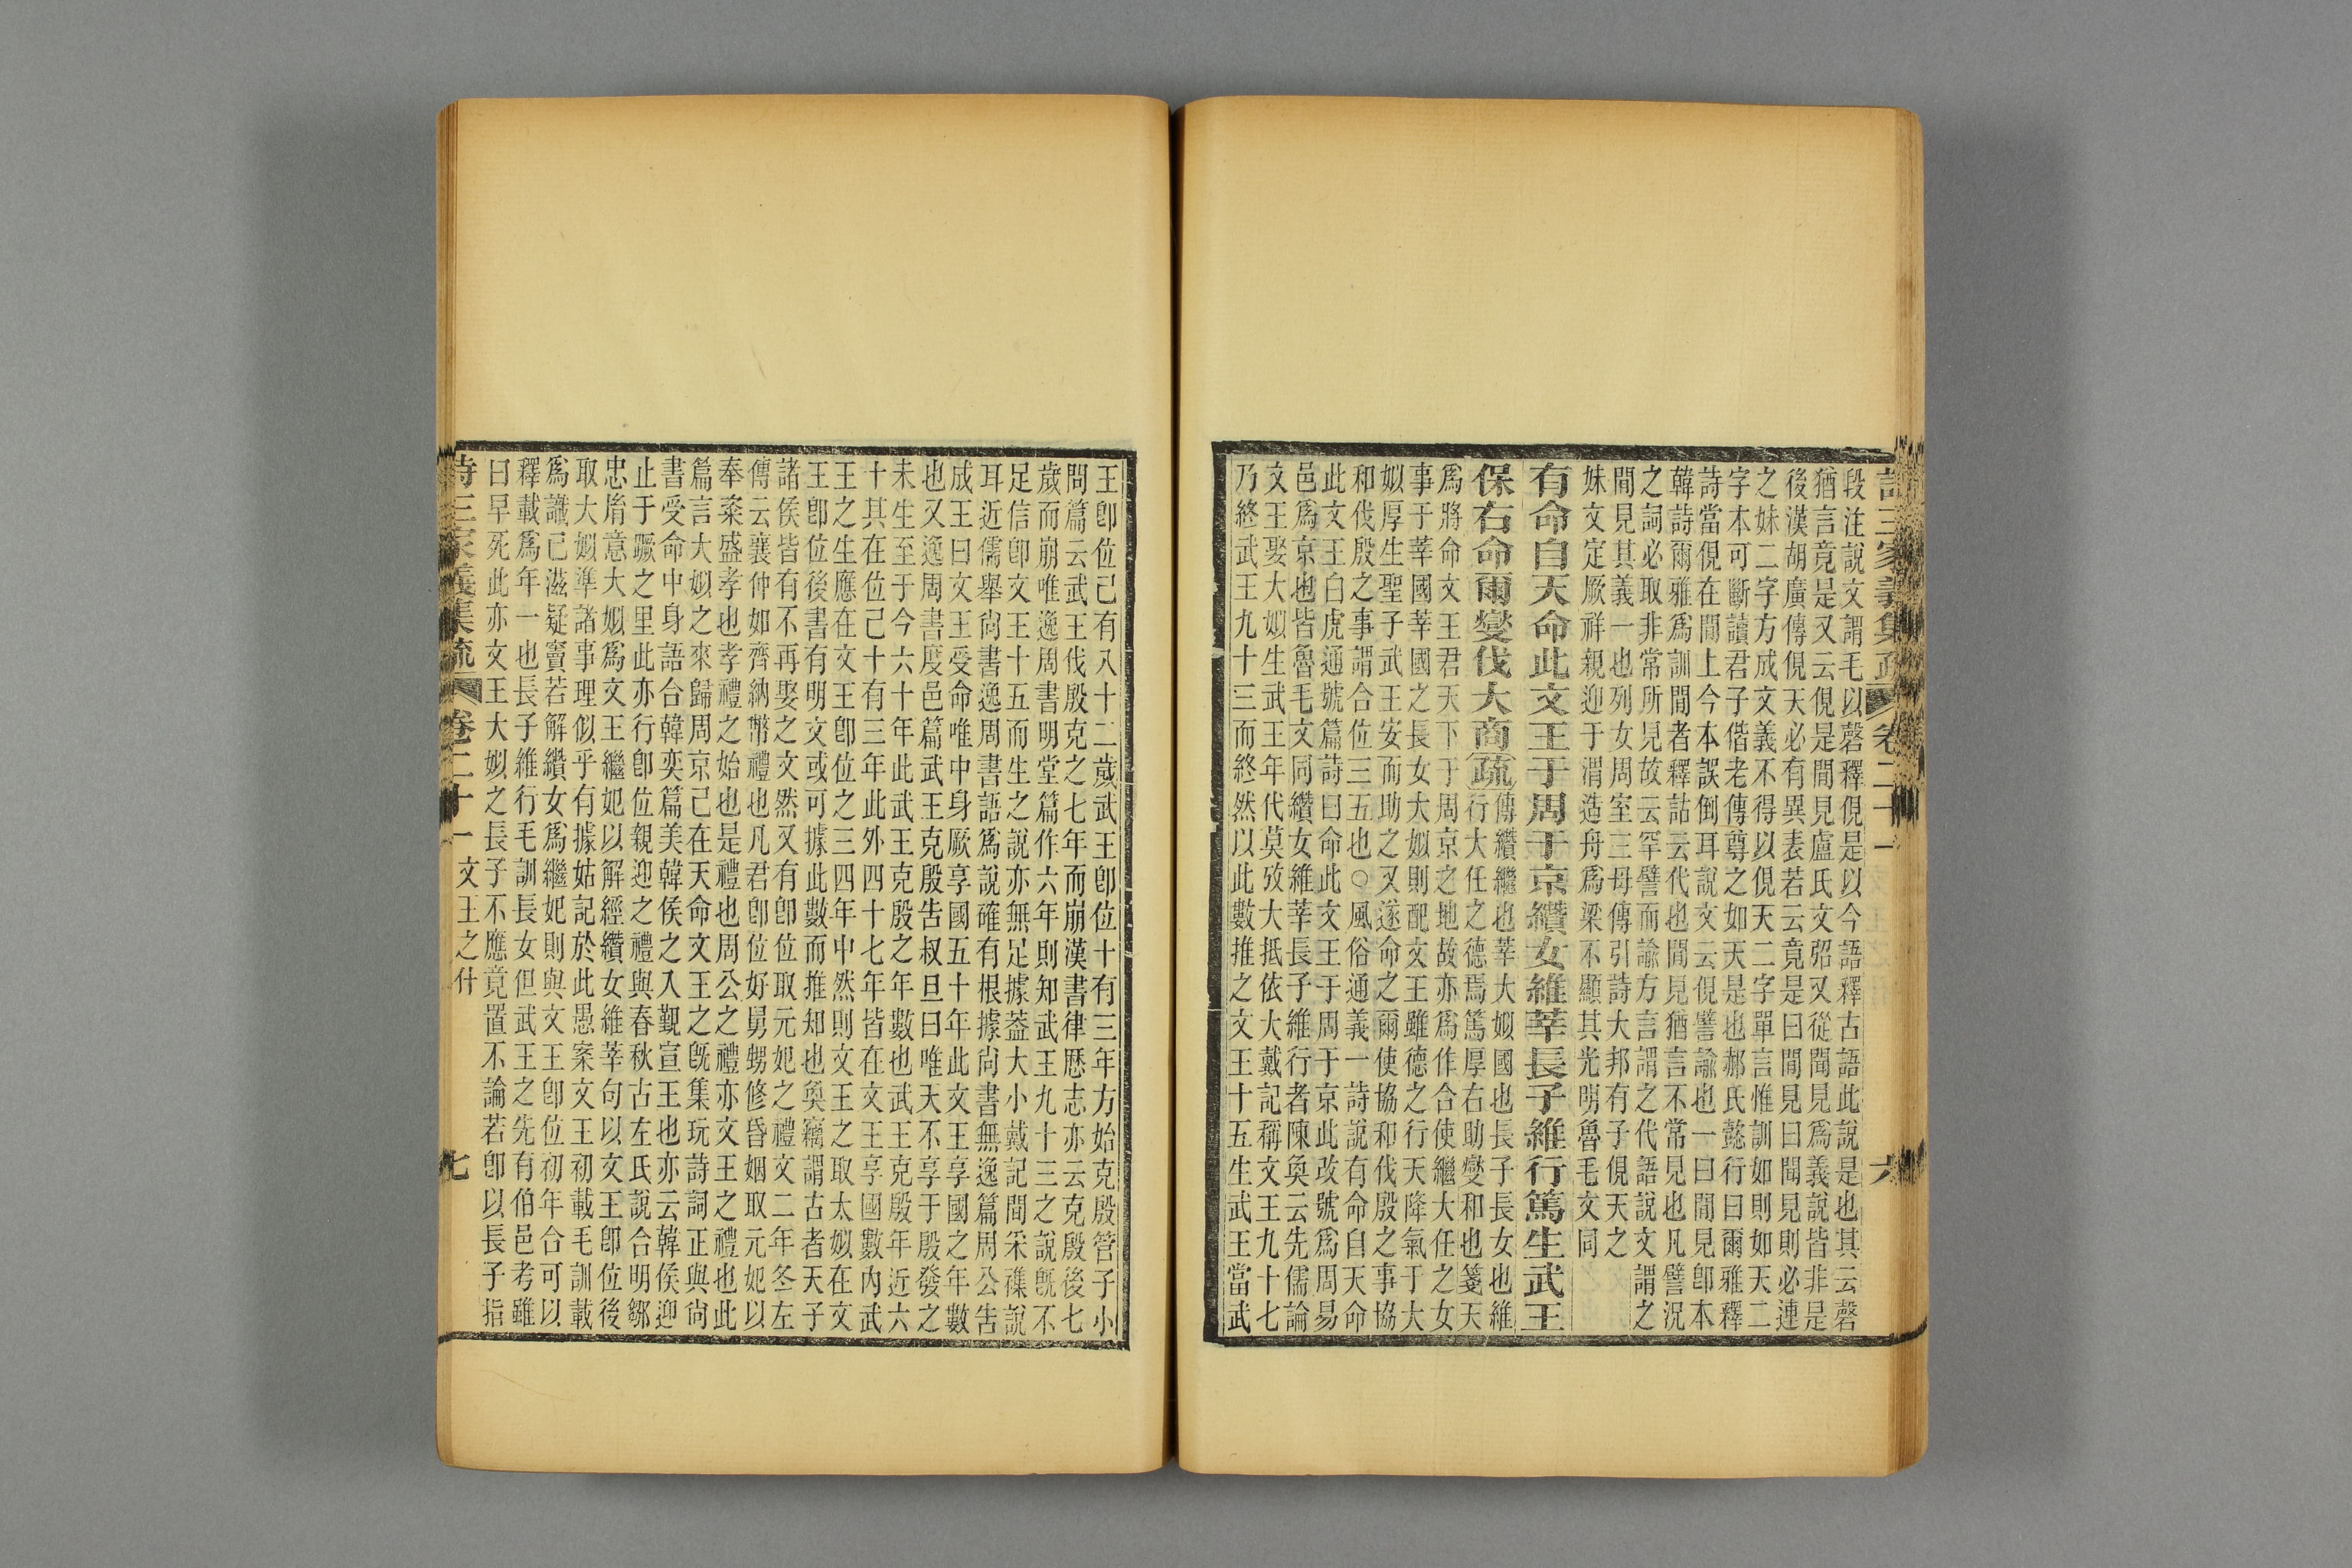 詩三家義集疏 卷二十一 六
段注說文謂毛以磬釋俔是以今語釋古語此說是也其云磬
猶言竟是又云俔是閒見盧氏文弨又從聞見爲義說皆非是
後漢胡廣傳俔天必有異表若云竟是曰閒見曰聞見則必連
之妹二字方成文義不得以俔天二字單言惟訓如則如天二
字本可斷讀君子偕老傳尊之如天是也郝氏懿行曰爾雅釋
詩當俔在閒上今本誤倒耳說文云俔譬諭也一曰閒見卽本
韓詩爾雅爲訓閒者釋詁云代也閒見猶言不常見也凡譬況
之詞必取非常所見故云罕譬而諭方言謂之代語說文謂之
閒見其義一也列女周室三母傳引詩大邦有子俔天之
妹文定厥祥親迎于渭造舟爲梁不顯其光明魯毛文同
有命自天命此文王于周于京纘女維莘長子維行篤生武王
保右命爾燮伐大商疏傳纘繼也莘大姒國也長子長女也維
行大任之德焉篤厚右助燮和也箋天
爲將命文王君天下于周京之地故亦爲作合使繼大任之女
事于莘國莘國之長女大姒則配文王雖德之行天降氣于大
姒厚生聖子武王安而助之又遂命之爾使協和伐殷之事協
和伐殷之事謂合位三五也○風俗通義一詩說有命自天命
此文王白虎通號篇詩曰命此文王于周于京此改號爲周易
邑爲京也皆魯毛文同纘女維莘長子維行者陳奐云先儒論
文王娶大姒生武王年代莫攷大抵依大戴記稱文王九十七
乃終武王九十三而終然以此數推之文王十五生武王當武
王卽位己有八十二歲武王卽位十有三年方始克殷管子小
問篇云武王伐殷克之七年而崩漢書律厤志亦云克殷後七
歲而崩唯逸周書明堂篇作六年則知武王九十三之說旣不
足信卽文王十五而生之說亦無足據葢大小戴記閒采襍說
耳近儒舉尙書逸周書語爲說確有根據尙書無逸篇周公告
成王曰文王受命唯中身厥享國五十年此文王享國之年數
也又逸周書度邑篇武王克殷告叔旦曰唯天不享于殷發之
未生至于今六十年此武王克殷之年數也武王克殷年近六
十其在位己十有三年此外四十七年皆在文王享國數內武
王之生應在文王卽位之三四年中然則文王之取太姒在文
王卽位後書有明文或可據此數而推知也奐竊謂古者天子
諸侯皆有不再娶之文然又有卽位取元妃之禮文二年冬左
傳云襄仲如齊納幣禮也凡君卽位好舅甥修昏姻取元妃以
奉粢盛孝也孝禮之始也是禮也周公之禮亦文王之禮也此
篇言大姒之來歸周京己在天命文王之旣集玩詩詞正與尙
書受命中身語合韓奕篇美韓侯之入覲宣王也亦云韓侯迎
止于蹶之里此亦行卽位親迎之禮與春秋古左氏說合明鄒
忠胤意大姒爲文王繼妃以解經纘女維莘句以文王卽位後
取大姒準諸事理似乎有據姑記於此愚案文王初載毛訓載
爲識己滋疑竇若解纘女爲繼妃則與文王卽位初年合可以
釋載爲年一也長子維行毛訓長女但武王之先有伯邑考雖
曰早死此亦文王大姒之長子不應竟置不論若卽以長子指
詩三家義集疏 卷二十一 文王之什 七